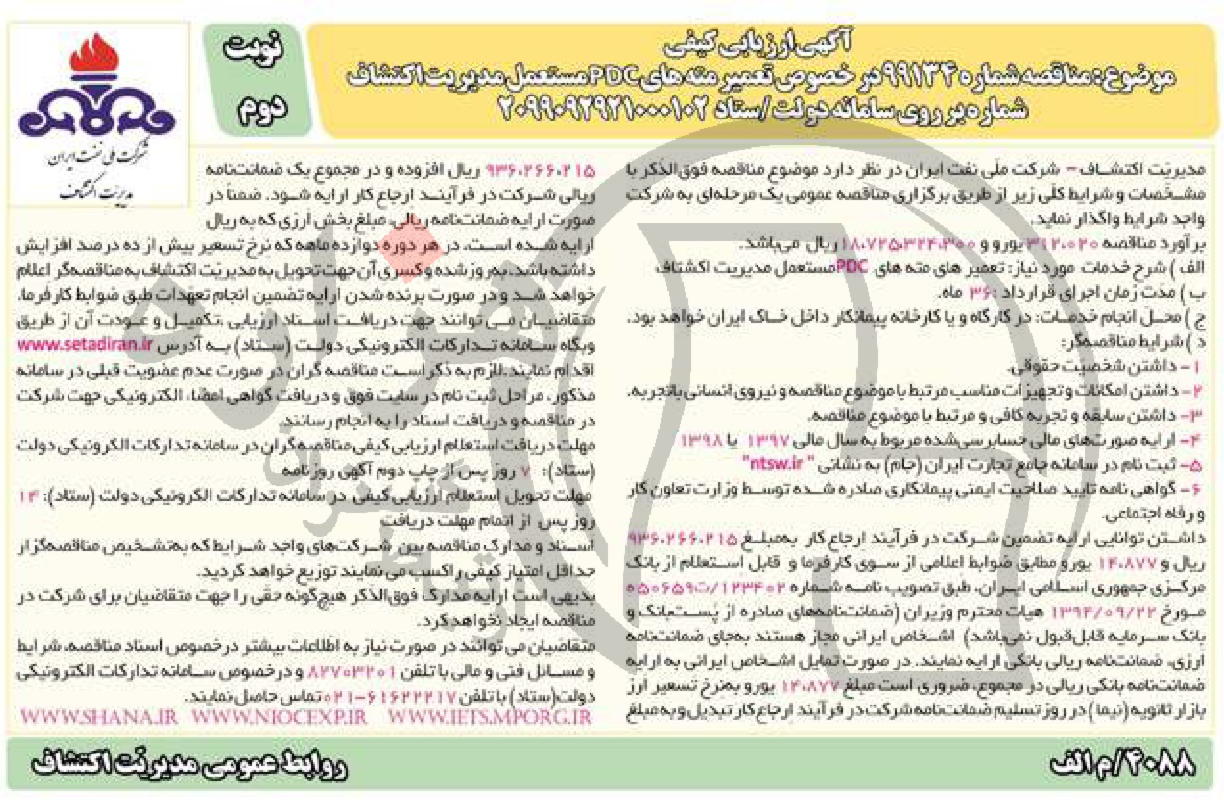 آگهی ارزیابی کیفی
موضوع: مناقصه شماره ۹۹۱۳۴ در خصوص تعمیر مته های PDC مستعمل مدیریت اکتشاف
شماره بر روی سامانه دولت /ستاد ۲۰۹۹۰۹۲۹۲۱۰۰۰۱۰۲
نوبت
دوم
شرکت ملی نفت ایران
مدیریت اکتشاف
مدیریّت اکتشـاف – شرکت ملّی نفت ایران در نظر دارد موضوع مناقصه فوق‌الذکر با
مشـخّصات و شرایط کلّی زیر از طریق برگزاری مناقصه عمومی یک مرحله‌ای به شرکت
واجد شرایط واگذار نماید.
برآورد مناقصه ۳۱۲،۰۲۰ یورو و ۱۸،۷۲۵،۳۲۴،۳۰۰ ریال می‌باشد.
الف ) شرح خدمات مورد نیاز: تعمیر های مته های PDC مستعمل مدیریت اکشتاف
ب ) مدت زمان اجرای قرارداد :۳۶ ماه.
ج ) محـل انجام خدمـات: در کارگاه و یا کارخانه پیمانکار داخل خـاک ایران خواهد بود.
د ) شرایط مناقصه‌گر:
۱– داشتن شخصیت حقوقی.
۲– داشتن امکانات و تجهیزات مناسب مرتبط با موضوع مناقصه و نیروی انسانی باتجربه.
۳– داشتن سابقه و تجربه کافی و مرتبط با موضوع مناقصه.
۴– ارایه صورت‌های مالی حسابرسی‌شده مربوط به سال مالی ۱۳۹۷ یا ۱۳۹۸
۵– ثبت نام در سامانه جامع تجارت ایران (جام) به نشانی " ntsw.ir"
۶– گواهی نامه تایید صلاحیت ایمنی پیمانکاری صادره شـده توسـط وزارت تعاون کار
و رفاه اجتماعی.
داشـتن توانایی ارایه تضمین شـرکت در فرآیند ارجاع کار به‌مبلـغ ۹۳۶،۲۶۶،۲۱۵
ریال و ۱۴،۸۷۷ یورو مطابق ضوابط اعلامی از سـوی کارفرما و قابل اسـتعلام از بانک
مرکـزی جمهوری اسـلامی ایـران، طبق تصویب نامـه شـماره ۱۲۳۴۰۲/ت۵۰۶۵۹ه
مـورخ ۱۳۹۴/۰۹/۲۲ هیات محترم وزیران (ضمانت‌نامه‌های صادره از پُسـت‌بانک و
بانک سـرمایه قابل‌قبول نمی‌باشد) اشـخاص ایرانی مجاز هستند به‌جای ضمانت‌نامه
ارزی، ضمانت‌نامه ریالی بانکی ارایه نمایند. در صورت تمایل اشـخاص ایرانی به ارایه
ضمانت‌نامه بانکی ریالی در مجموع، ضروری است مبلغ ۱۴،۸۷۷ یورو به‌نرخ تسعیر ارز
بازار ثانویه (نیما) در روز تسلیم ضمانت‌نامه شرکت در فرآیند ارجاع کار تبدیل و به مبلغ
۹۳۶،۲۶۶،۲۱۵ ریال افزوده و در مجموع یک ضمانت‌نامه
ریالی شـرکت در فرآینـد ارجاع کار ارایه شـود. ضمناً در
صورت ارایه ضمانت‌نامه ریالی، مبلغ بخش ارزی که به ریال
ارایه شـده اسـت، در هر دوره دوازده ماهه که نرخ تسعیر بیش از ده درصد افزایش
داشته باشد، به‌روز شده و کسری آن جهت تحویل به مدیریّت اکتشاف به مناقصه‌گر اعلام
خواهد شـد و در صورت برنده شدن ارایه تضمین انجام تعهّدات طبق ضوابط کارفرما.
متقاضیـان مـی توانند جهت دریافـت اسـناد ارزیابی ،تکمیـل و عـودت آن از طریق
وبگاه سـامانه تـدارکات الکترونیکی دولـت (سـتاد) بـه آدرس www.setadiran.ir
اقدام نمایند.لازم به ذکر اسـت مناقصه گران در صورت عدم عضویت قبلی در سامانه
مذکور، مراحل ثبت نام در سایت فوق و دریافت گواهی امضـا، الکترونیکی جهت شرکت
در مناقصه و دریافت اسناد را به انجام رسانند.
مهلت دریافت استعلام ارزیابی کیفی مناقصه‌گران در سامانه تدارکات الکترونیکی دولت
(ستاد): ۷ روز پس از چاپ دوم آگهی روزنامه
مهلت تحویل استعلام ارزیابی کیفی در سامانه تدارکات الکترونیکی دولت (ستاد): ۱۴
روز پس از اتمام مهلت دریافت
اسـناد و مدارک مناقصه بین شـرکت‌های واجد شـرایط که به‌تشـخیص مناقصه‌گزار
حداقل امتیاز کیفی را کسب می نمایند توزیع خواهد گردید.
بدیهی است ارایه مدارک فوق‌الذکر هیچ‌گونه حقی را جهت متقاضیان برای شرکت در
مناقصه ایجاد نخواهد کرد.
متقاضیان می توانند در صورت نیاز به اطّلاعات بیشتر درخصوص اسناد مناقصه، شرایط
و مسـائل فنی و مالی با تلفن ۸۲۷۰۳۲۰۱ و درخصوص سـامانه تدارکات الکترونیکی
دولت(ستاد) با تلفن ۰۲۱-۶۱۶۲۲۲۱۷ تماس حاصل نمایند.
WWW.SHANA.IR WWW.NIOCEXP.IR WWW.IETS.MPORG.IR
۴۰۸۸/م الف
روابط عمومی مدیریّت اکتشاف